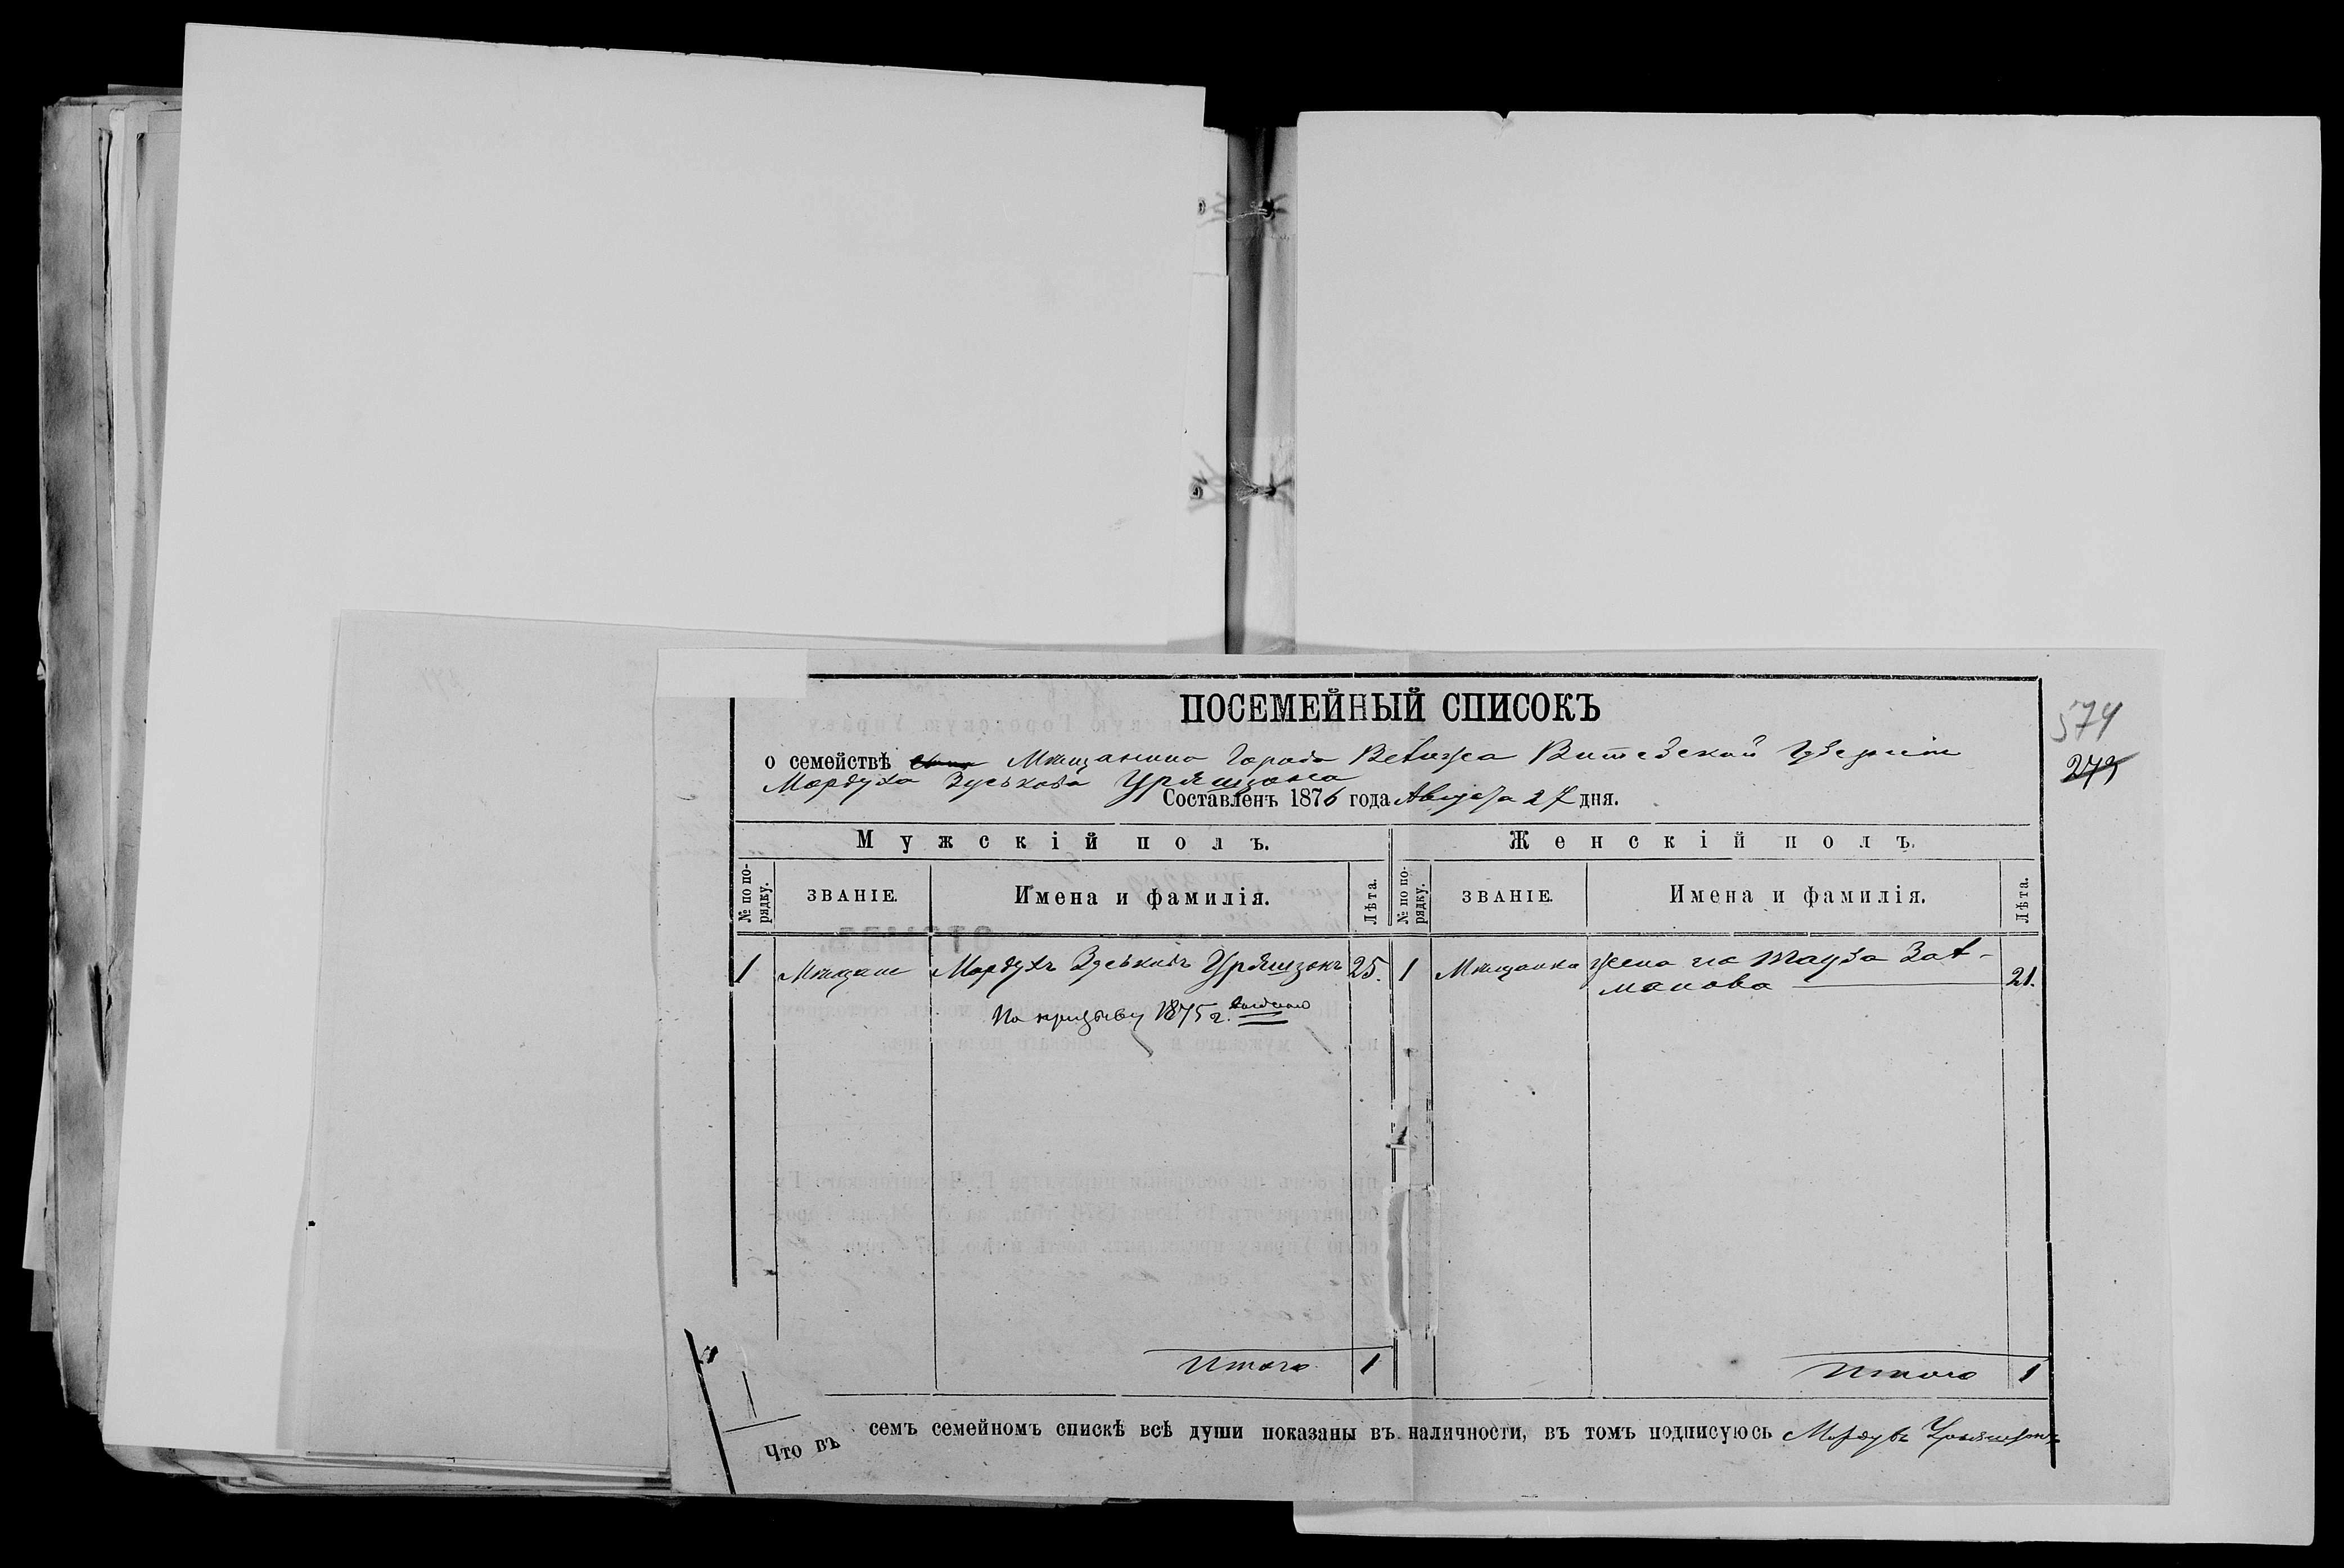 ПОСЕМЕЙНЫЙ СПИСОКЪ
574
о семействѣ Мѣщанина Города Велижа Витебской Губерніи
279
Мордуха Зуськова
Составленъ 1876 года Августа 27 дня.
Мужскій полъ. Женскій полъ.
№ по по-рядку. ЗВАНІЕ. Имена и фамилія. Лѣта. № по по-рядку. ЗВАНІЕ. Имена и фамилія. Лѣта.
1 Мѣщане Мордухъ Зуськовъ 25. 1 Мѣщанка Жена его Зал-
манова 21.
По призыву 1875 г.
Итого 1 Итого 1
Что въ семъ семейномъ спискѣ всѣ души показаны въ наличности, въ томъ подписуюсь Мордухъ